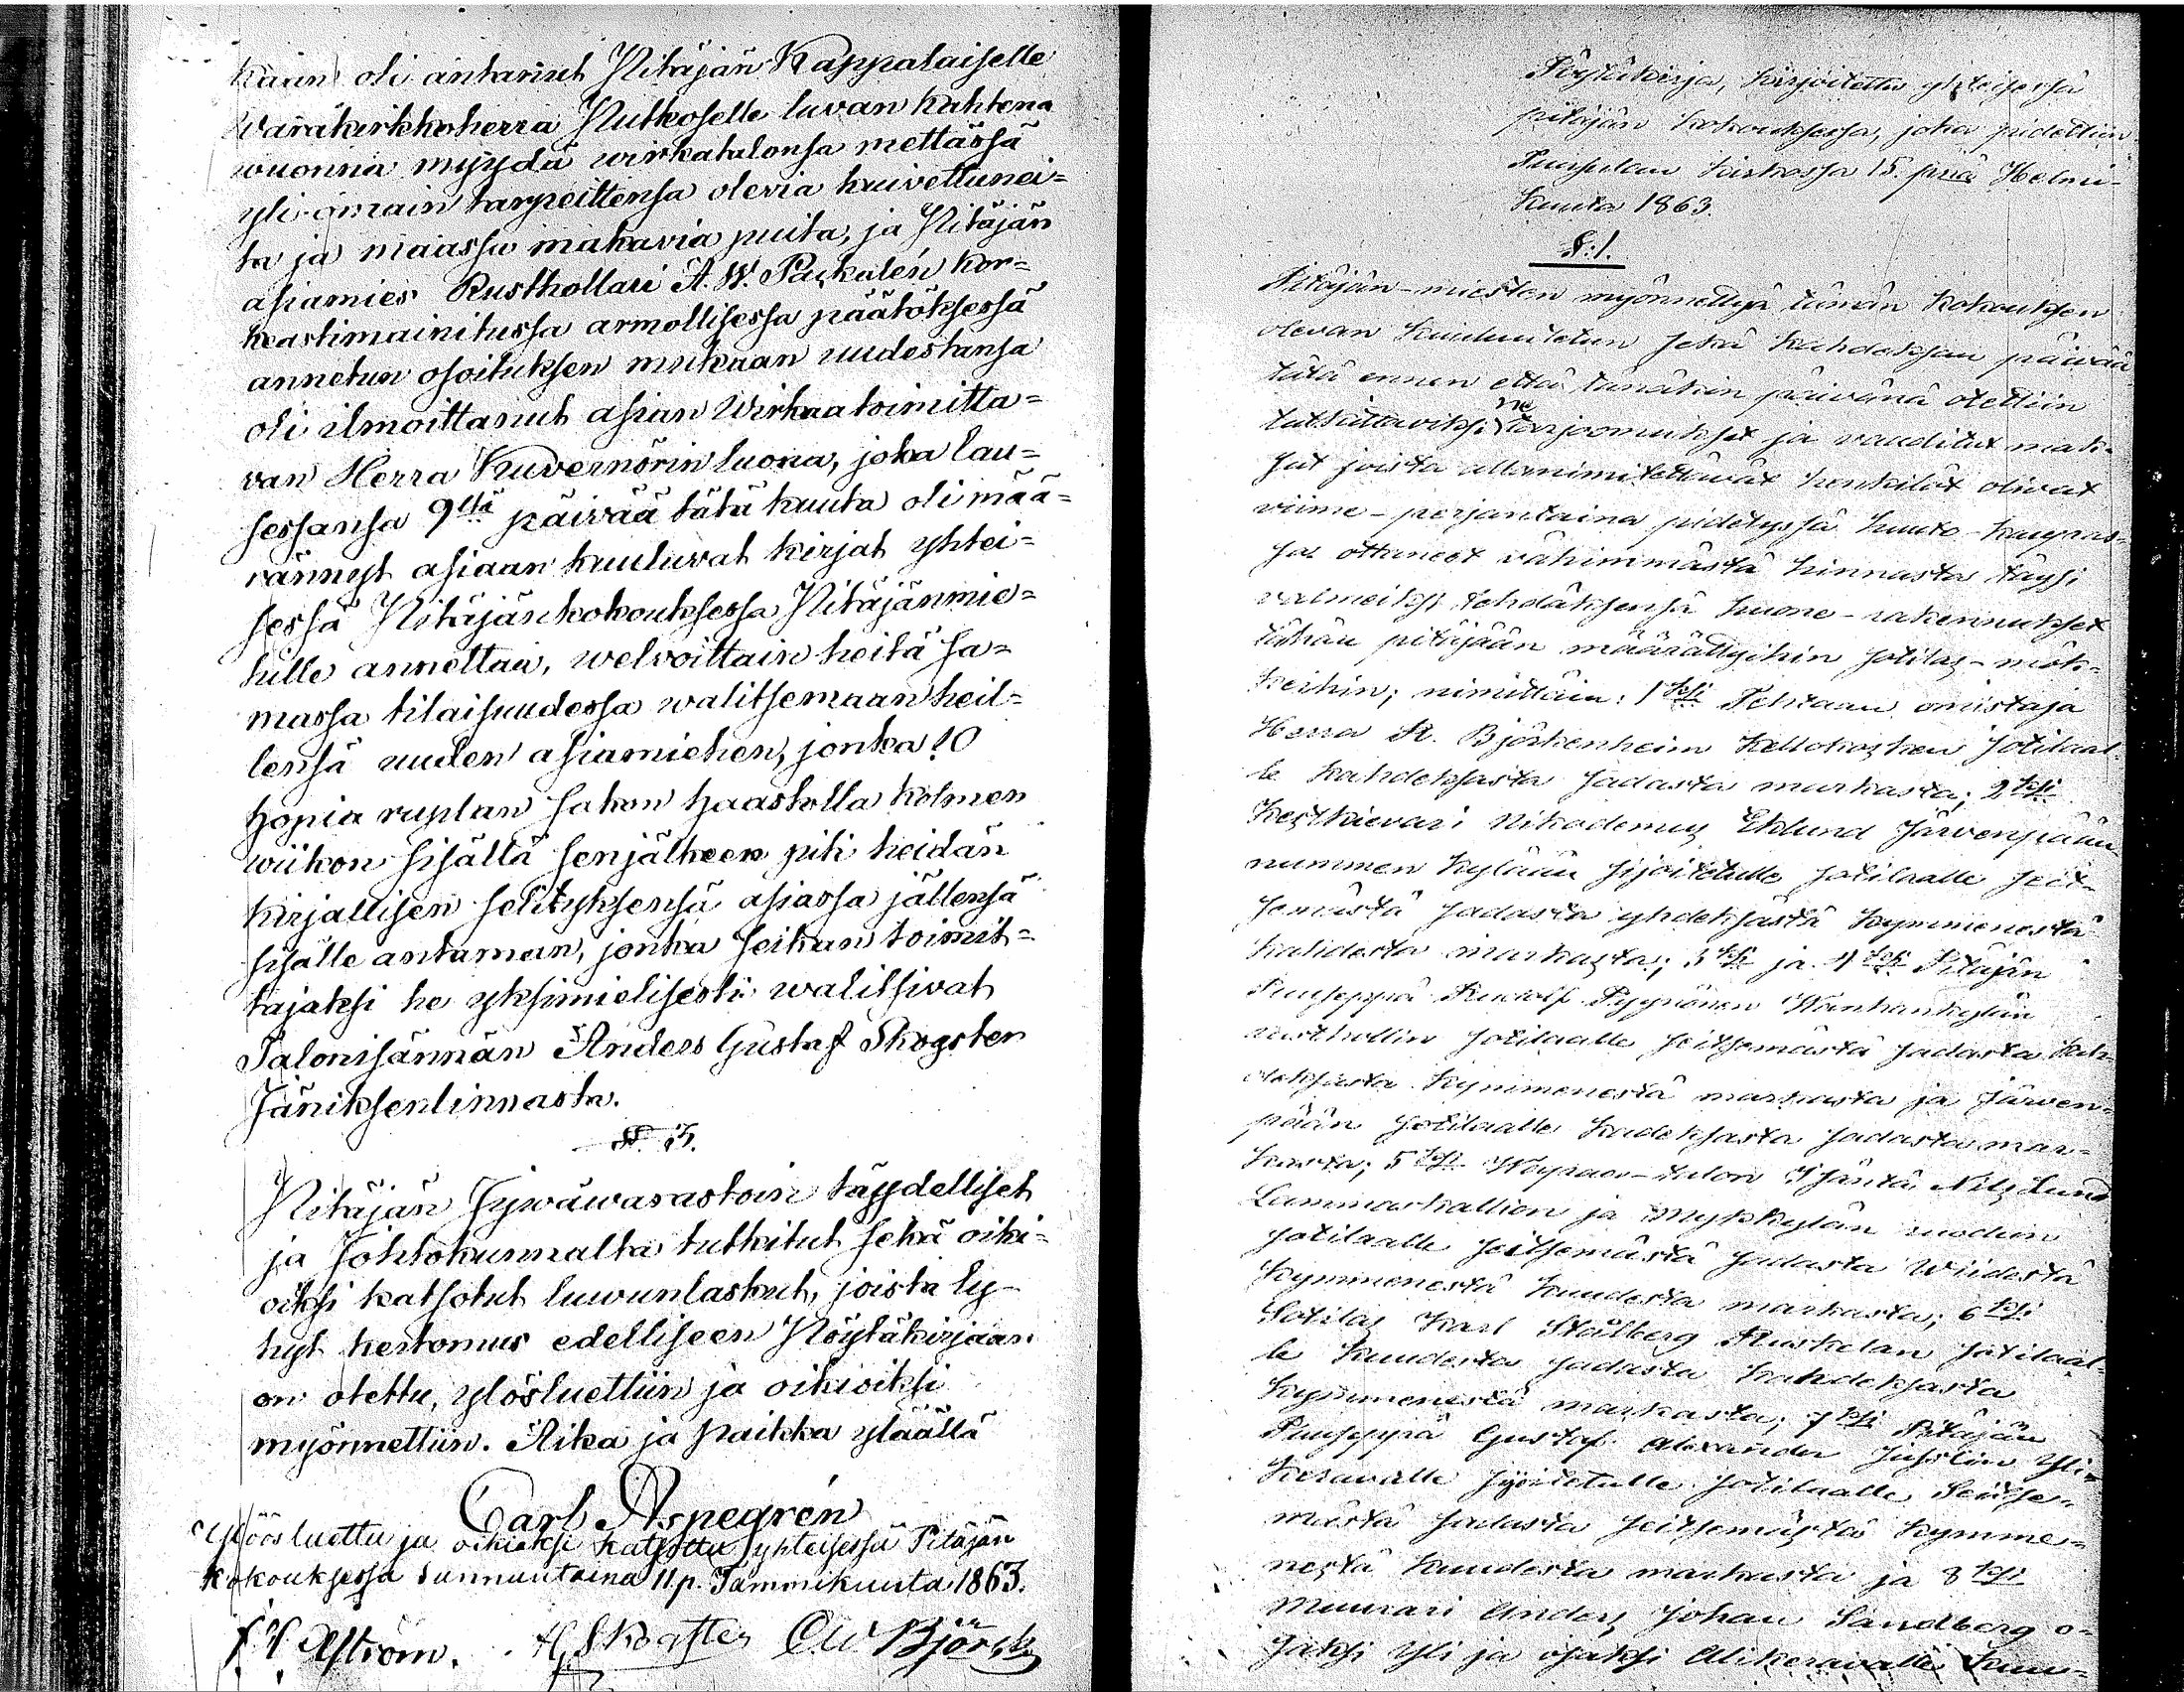 kään oli antanut Pitäjän Kappalaiselle
Warakirkkoherra Putkoselle luvan kahtena
wuonna myydä wirkatalonsa mettässä
yli omain tarpeittensa olevia kuivettunei=
ta ja maassa makavia puita, ja Pitäjän
asiamies Rusthollari A. W. Paskalén kor=
keastimainitussa armollisessa päätöksessä
annetun osoituksen mukaan uudestansa
oli ilmoittanut asian Wirkaatoimitta=
van Herra Kuvernörin luona, joka lau=
sessansa 9ttä päivää tätä kuuta oli mää=
rännyt asiaan kuuluvat kirjat yhtei=
sessä Pitäjänkokouksessa Pitäjänmie=
hille annettaa, welvoittain heitä sa=
massa tilaisuudessa walitsemaan heil=
lensä uuden asiamiehen, jonka 10
hopia ruplan sakon haastolla kolmen
wiikon sisällä senjälkeen piti heidän
kirjallisen selityksensä asiassa jällensä
sisälle antaman, jonka seikan toimit=
tajaksi he yksimielisesti walitsivat
Talonisännän Anders Gustaf Skogster
Jäniksenlinnasta.
§. 3.
Pitäjän Jywäwarastoin täydelliset
ja Johtokunnalta tutkitut sekä oiki=
oiksi katsotut luwunlaskut, joista ly=
hyt kertomus edelliseen Pöytäkirjaan
on otettu, ylösluettiin ja oikioiksi
myönnettiin. Aika ja paikka ylläällä
Carl Aspegrén
Ylöösluettu ja oikiaksi katsottu yhteisessä Pitäjän
kokouksessa sunnuntaina 11 p. Tammikuuta 1863.
Åström. AG Skogster CW Björk
Pöytäkirja, kirjoitettu yhteisessä
pitäjän kokouksessa, joka pidettiin
Tuusulan kirkossa 15. pnä Helmi-
kuuta 1863.
§:1.
Pitäjän-miesten myönnettyä tämän kokouksen
olevan kuulutetun sekä kahdeksan päivää
tätä ennen että tänäkin päivänä otettiin
tutkittaviksi ne tarjoomukset ja vauditut mak=
sut joista allanimitettävät henkilöt olivat
viime-perjantaina pidetyssä huuto-kaupas=
sa ottaneet vähimmästä hinnasta täysi
valmeiksi tehdäksensä huone-rakennukset
tähän pitäjään määrättyihin sotilas-mök=
keihin; nimittäin: 1ksi Tehtaan omistaja
Herra A. Björkenheim Kellokosken sotilaal=
le kahdeksasta sadasta markasta; 2ksi
Kestkievari Nikodemus Eklund Järvenpään
nummen kylään sijoitetulle sotilaalle seit=
semästä sadasta yhdeksästä kymmenestä
kahdesta markasta; 3ksi ja 4ksi Pitäjän
Puuseppä Rudolf Pyynönen Wanhankylän
rusthollin sotilaalle seitsemästä sadasta kah=
deksasta kymmenestä markasta ja Järven=
pään sotilaalle kadeksasta sadasta mar=
kasta; 5ksi -talon Isäntä Nils Lund
Lammaskallion ja Myllkylän ruodun
sotilaalle seitsemästä sadasta Wiidestä
kymmenestä kuudesta markasta; 6ksi
Sotilas Karl Stålberg Ruskelan sotilaal=
le kuudesta sadasta kahdeksasta
kymmenestä markasta; 7ksi Pitäjän
Puuseppä Gustaf Alexander Juslin Yli=
Keravalle sijoitetulle sotilaalle seitse=
mästä sadasta seitsemästä kymme=
nestä kuudesta markasta ja 8ksi
Muurari Anders Johan Sandberg o=
saksi Yli ja osaksi Alikeravalle